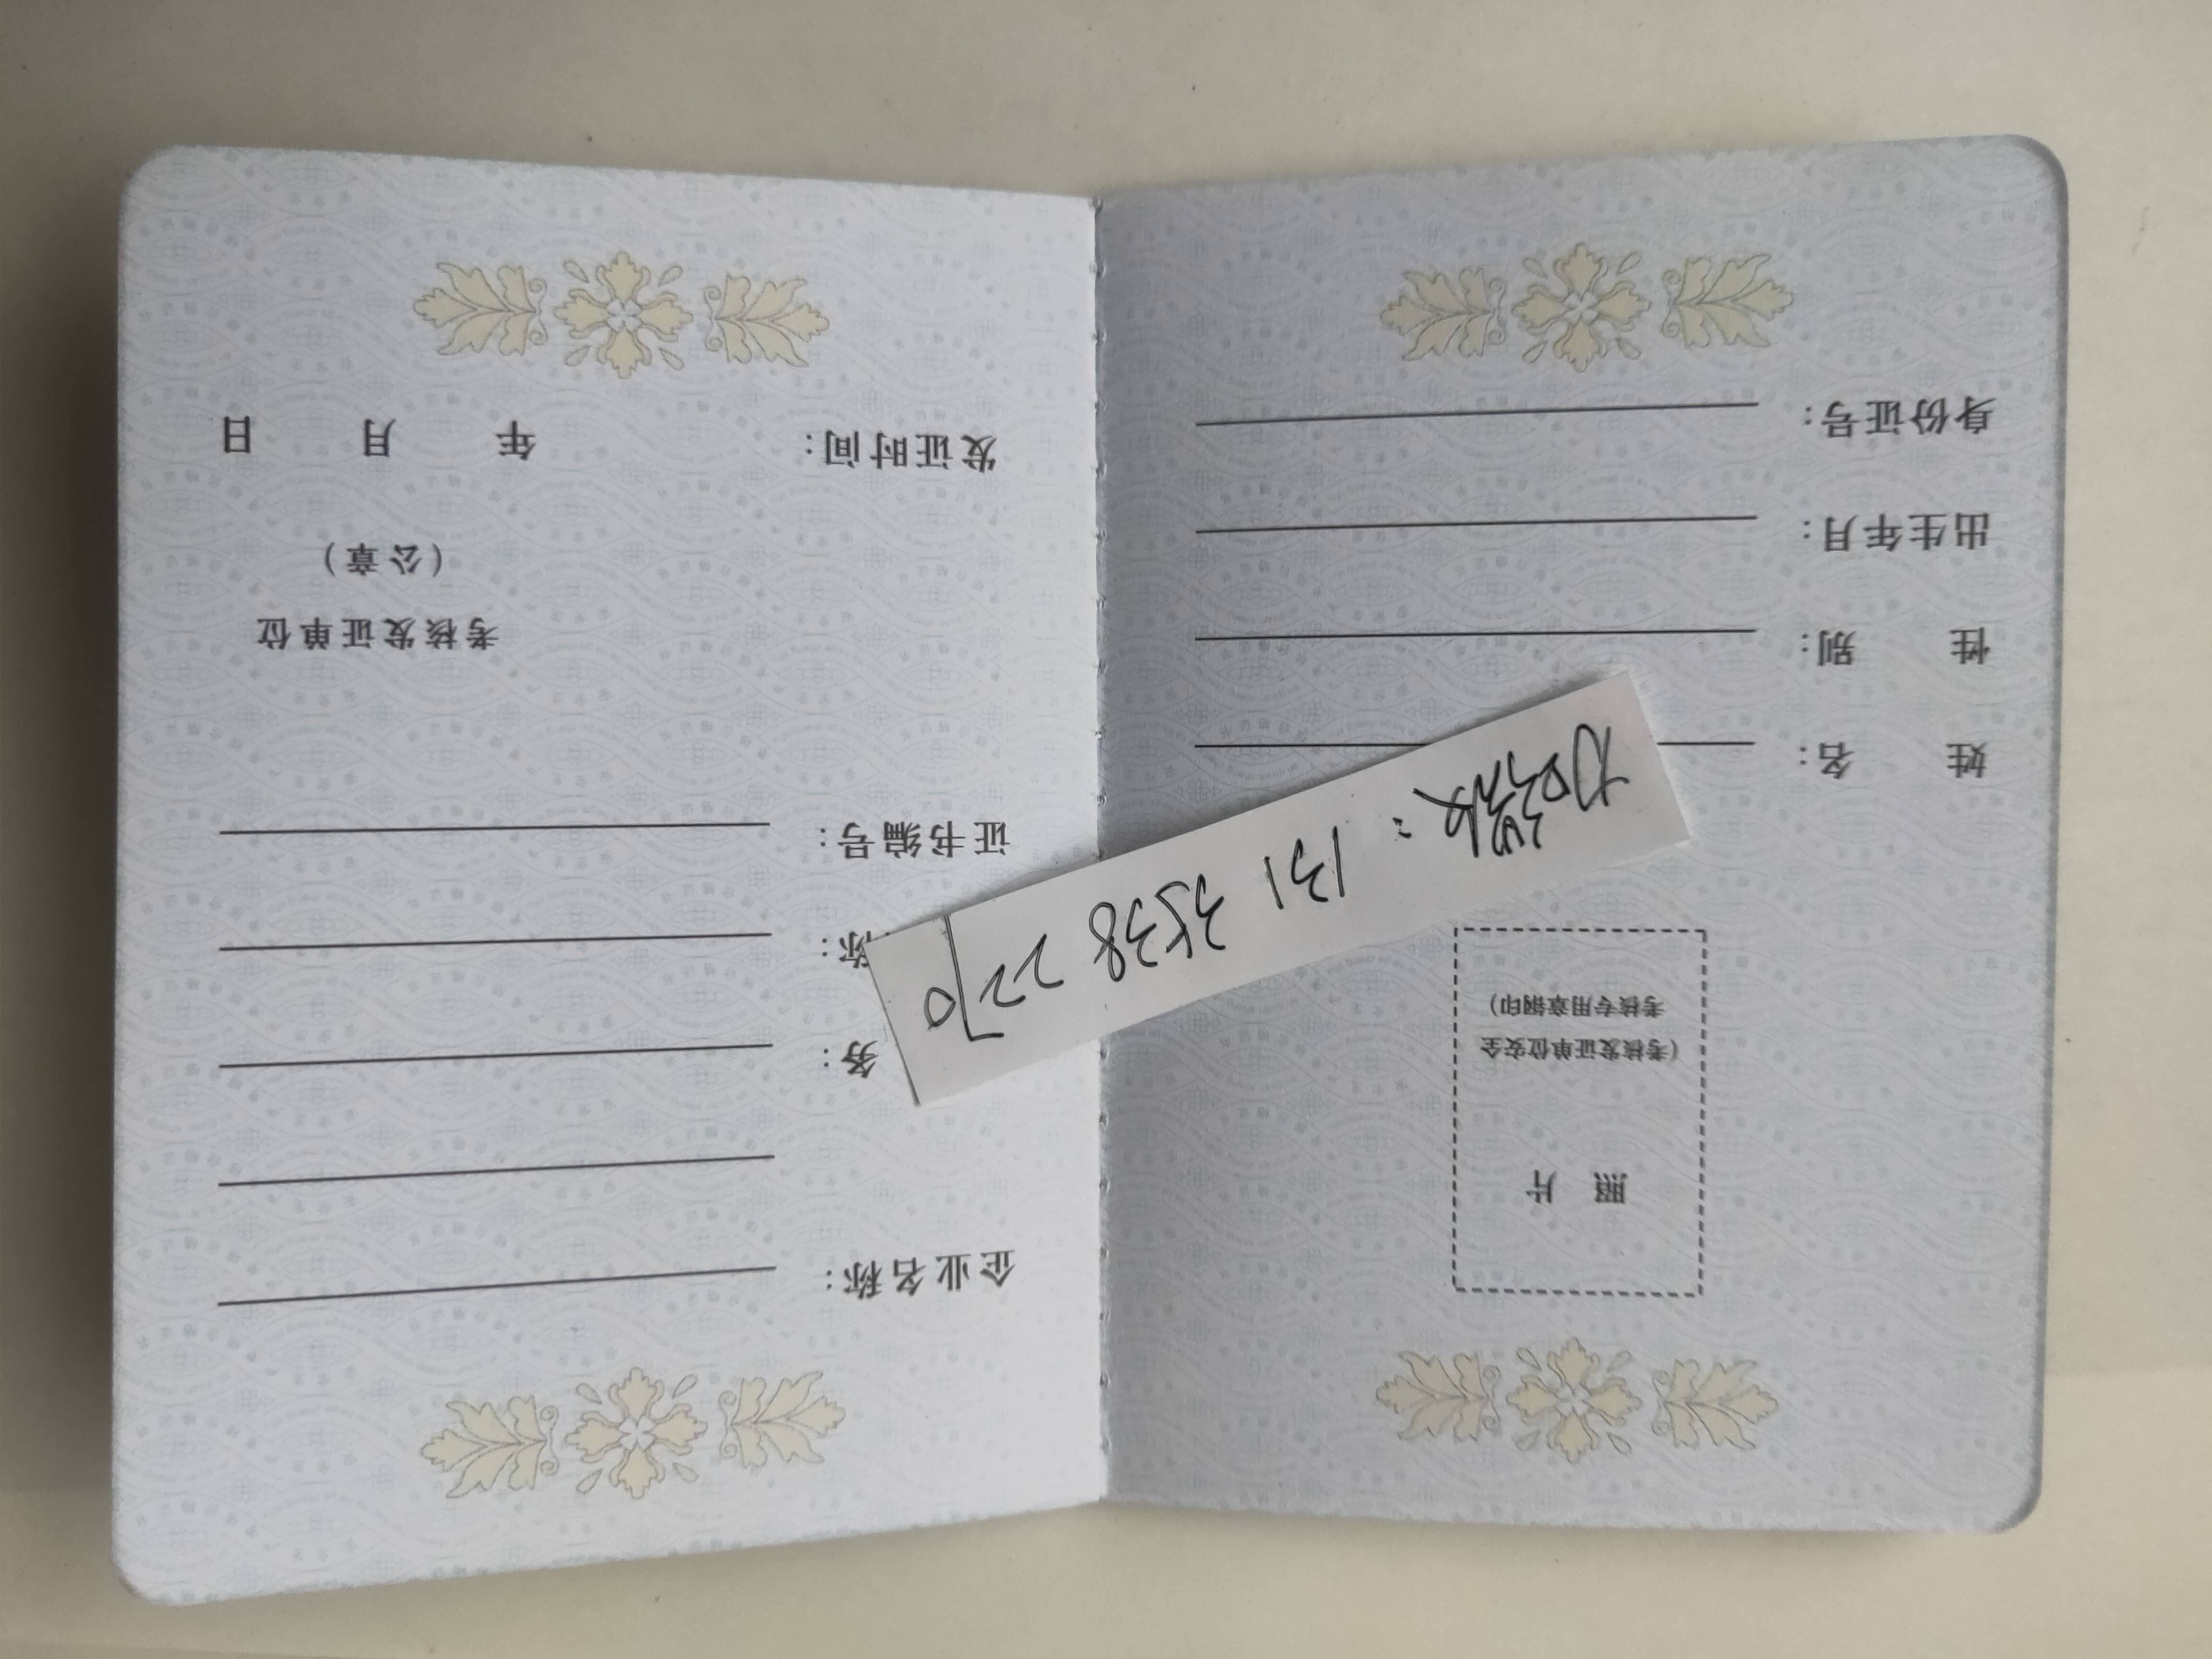 照 片
(考核发证单位安全
考核专用章钢印)
姓 名：
性 别：
出生年月：
身份证号：
加微：131 3538 2270
企业名称：
务：
称：
证书编号：
考核发证单位
(公章)
发证时间： 年 月 日